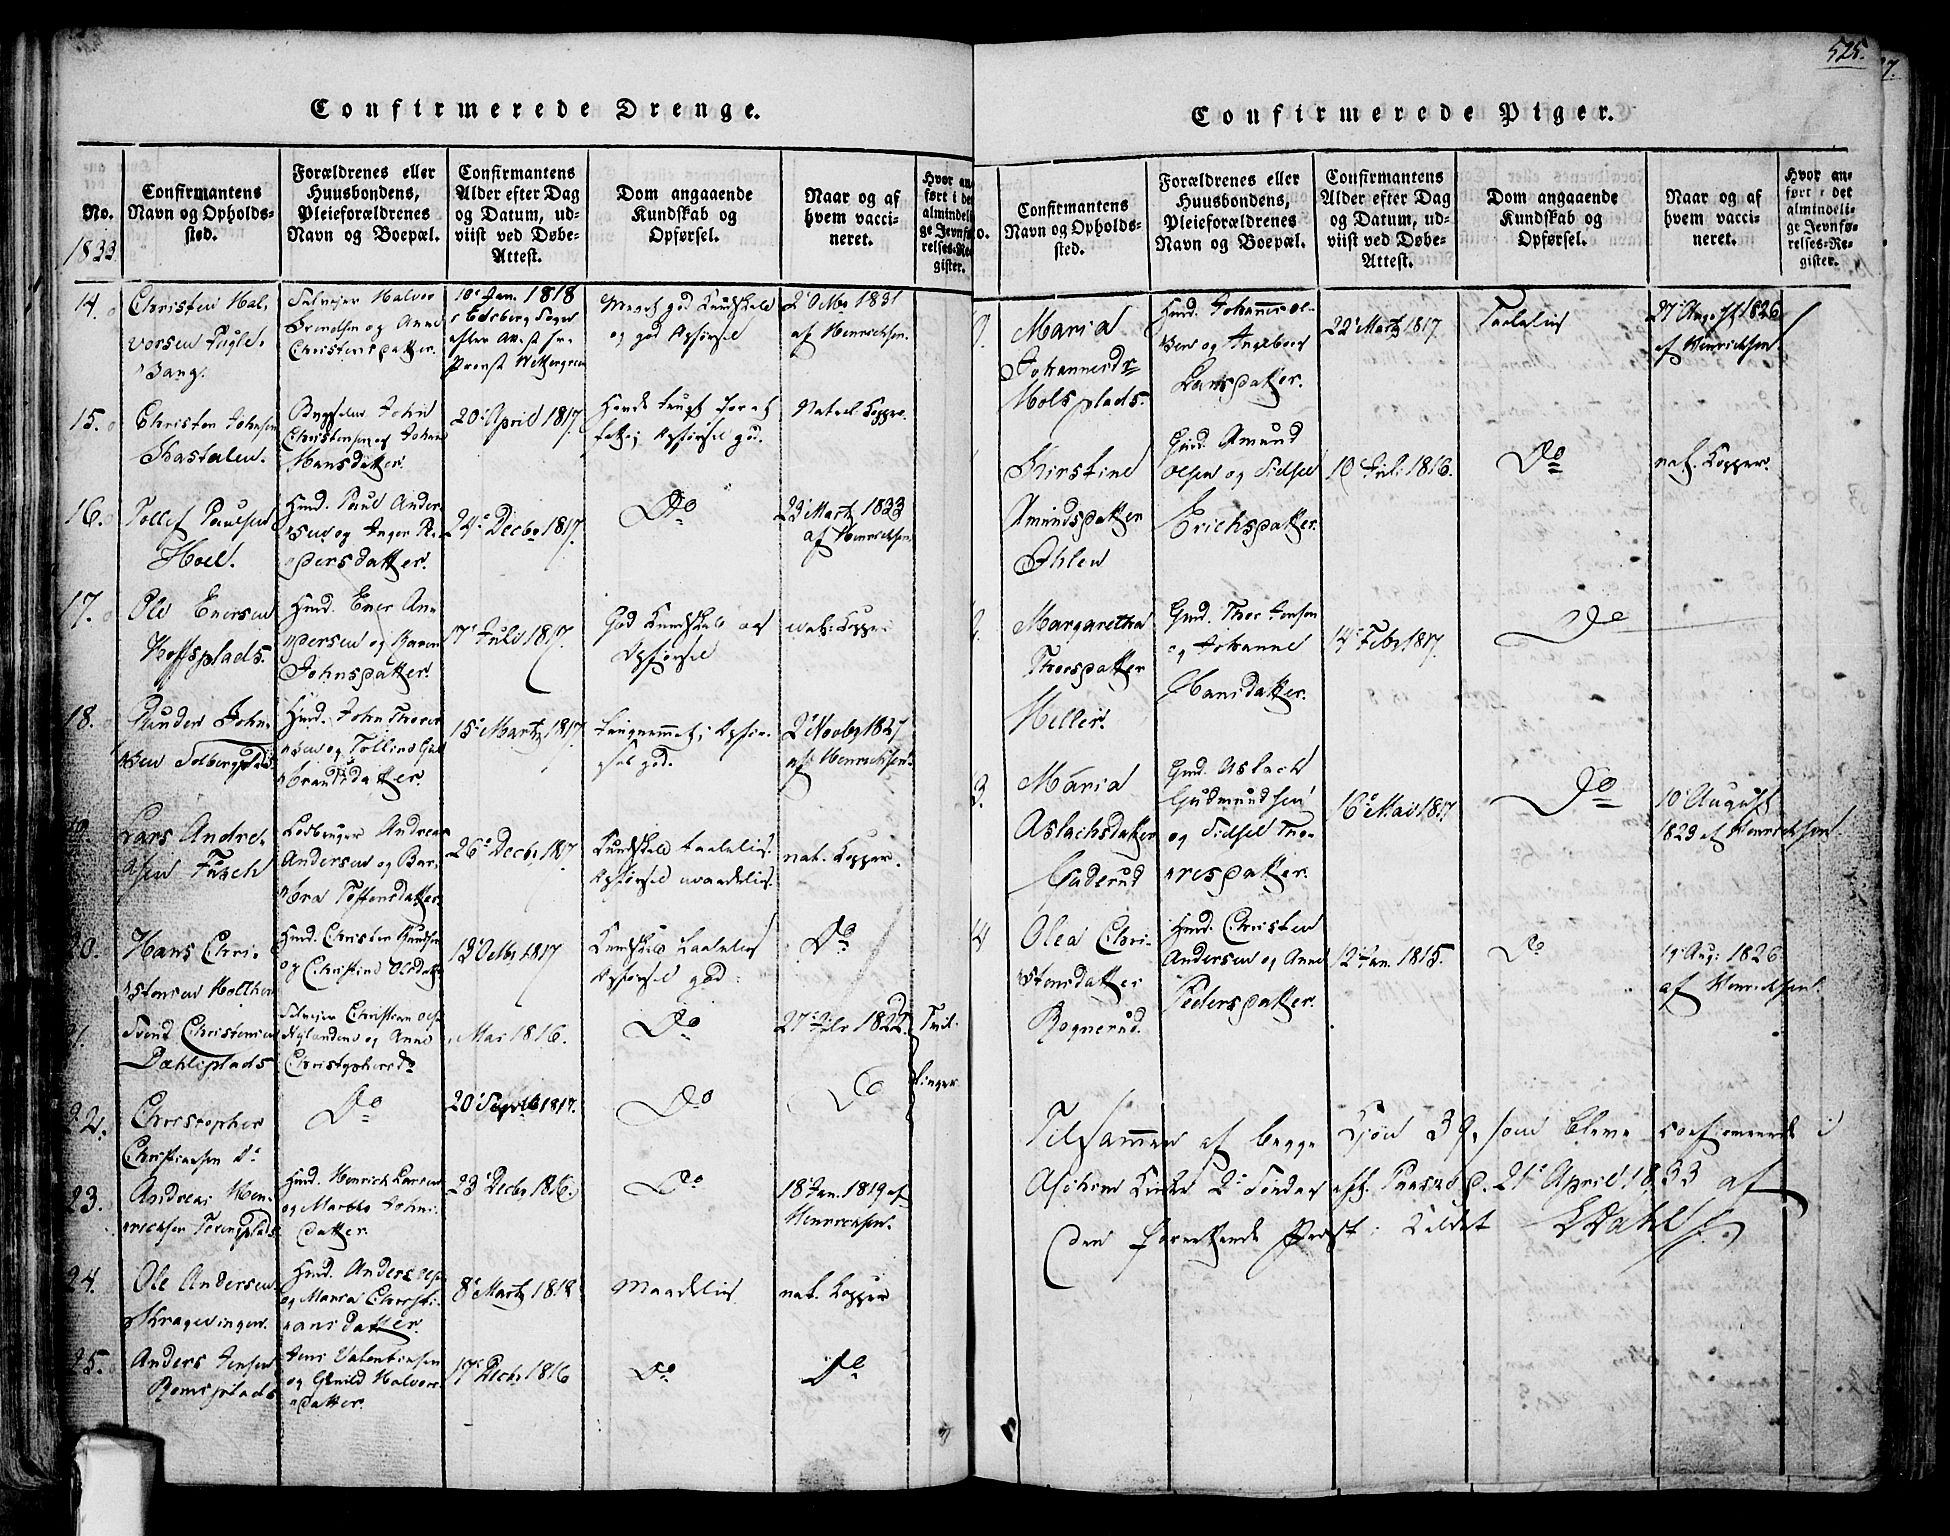 525.
Confirmerede Drenge.
No.
1833.
Confirmantens
Navn og Opholds-
sted.
Forældrenes eller
Huusbondens,
Pleieforældrenes
Navn og Boepæl.
Confirmantens
Alder efter Dag
og Datum, ud-
viist ved Døbe-
Attest.
Dom angaaende
Kundskab og
Opførsel.
Naar og af
hvem vacci-
neret.
Hvor an-
ført i de
almindeli
ge Jevnfø
relses-Re
gister.
14.
Christen Hal-
vorsen Fugle-
vang.
Selveier Halvor
Svendsen og Anne
Christensdatter.
10de Jan. 1818
i Edsberg Sogn
efter Attest fra
Provst
Meget god Kundskab
og god Opførsel
2 Octbr 1831
af Henrichsen.
15.
Christen Johnsen
Kastalen.
John
Christensen og Johanne
Hansdatter.
20 April 1817.
Opførsel god.
Naturl. Kopper.
16.
Tollef Paulsen
Hoel.
Huusmd. Paul Ander-
sen og Inger Pe-
dersdatter.
24 Decbr 1817.
Do
23 Martz 1833
af Henrichsen
17.
Ole Enersen
Hoffsplads.
Huusmd. Ener An-
dersen og Karen
Johnsdatter.
17 Juli 1817.
God Kundskab og
Opførsel
nat. Kopper
18.
Gunder John-
sen Solbergplads
Huusmd. John Thores-
sen og Gul-
brandsdatter
15 Martz 1817.
Opfør-
sel god.
2 Novbr 1827
af Henrichsen.
19.
Lars Andre-
sen
Andreas
Andersen og Bar-
bra Toftensdatter.
26 Decbr 1817
Kundskab taalelig.
Opførsel maadelig.
nat. Kopper.
20.
Hans Chri-
stensen Holther
Huusmd. Christen Knudsen
og Christine Olsdatter
13 Octbr 1817
Kundskab taalelig
Opførsel god.
Do
21.
Svend Christensen
Dæhliplads
Selveier Christian
og Anne
Christophersd.
Mai 1816.
Do
1822.
Tvil-
linger
22.
Christopher
Christiansen do
Do
20 1817.
Do
Do
23.
Andreas Hen-
richsen
Huusmd. Henrich Larsen
og Marthe Johns-
datter.
23 Decbr 1816.
Do
18 Jan. 1819 af
Henrichsen.
24.
Ole Andersen
Kragevingen.
Huusmd. Anders Olsen
og Maria Christi-
ansdatter.
8 Martz 1818
Maadelig
nat. Kopper
25.
Anders Jensen
Romsplads
Jens Valentinsen
og Gunild Halvors-
datter.
17 Decbr 1816
Do
Do
Confirmerede Piger.
Confirmantens
Navn og Opholds-
sted.
Forældrenes eller
Huusbondens,
Pleieforældrenes
Navn og Boepæl.
Confirmantens
Alder efter Dag
og Datum, ud-
viist ved Døbe-
Attest.
Dom angaaende
Kundskab og
Opførsel.
Naar og af
hvem vacci-
neret.
Hvor an-
ført i det
almindeli-
ge Jevnfø-
relses-Re-
gister.
Maria
Johannesdr
Molsplads.
Huusmd. Johannes Ol-
sen og Ingeborg
Larsdatter.
22 Martz 1817.
Taalelig
27 August 1826
af Henrichsen.
Kirstine
Amundsdatter
Ohlen
Gmd. Amund
Olsen og Sidsel
Erichsdatter.
10 Juli 1816.
Do
nat. Kopper.
Margaretha
Thoresdatter
Heller.
Gmd. Thor Jensen
og Johanne
Hansdatter.
14 Febr 1817.
Do
3.
Maria
Aslachsdatter
Gaderud
Gmd. Aslach
Gudmundsen
og Sidsel Tho-
resdatter.
16 Mai 1817
Do
10 August
1823 af Henrichsen
4
Olea Chri-
stensdatter
Rognerud.
Huusmd. Christen
Andersen og Anne
Pedersdatter.
12 Jan. 1815.
Do
19 Aug: 1826
af Henrichsen.
Tilsammen af begge Kjøn 39, som bleve confirmerede i
Aschim Kirke 2 Søndag eft. Paaske d. 21 April 1833 af
den forrettende Præst
Dahl